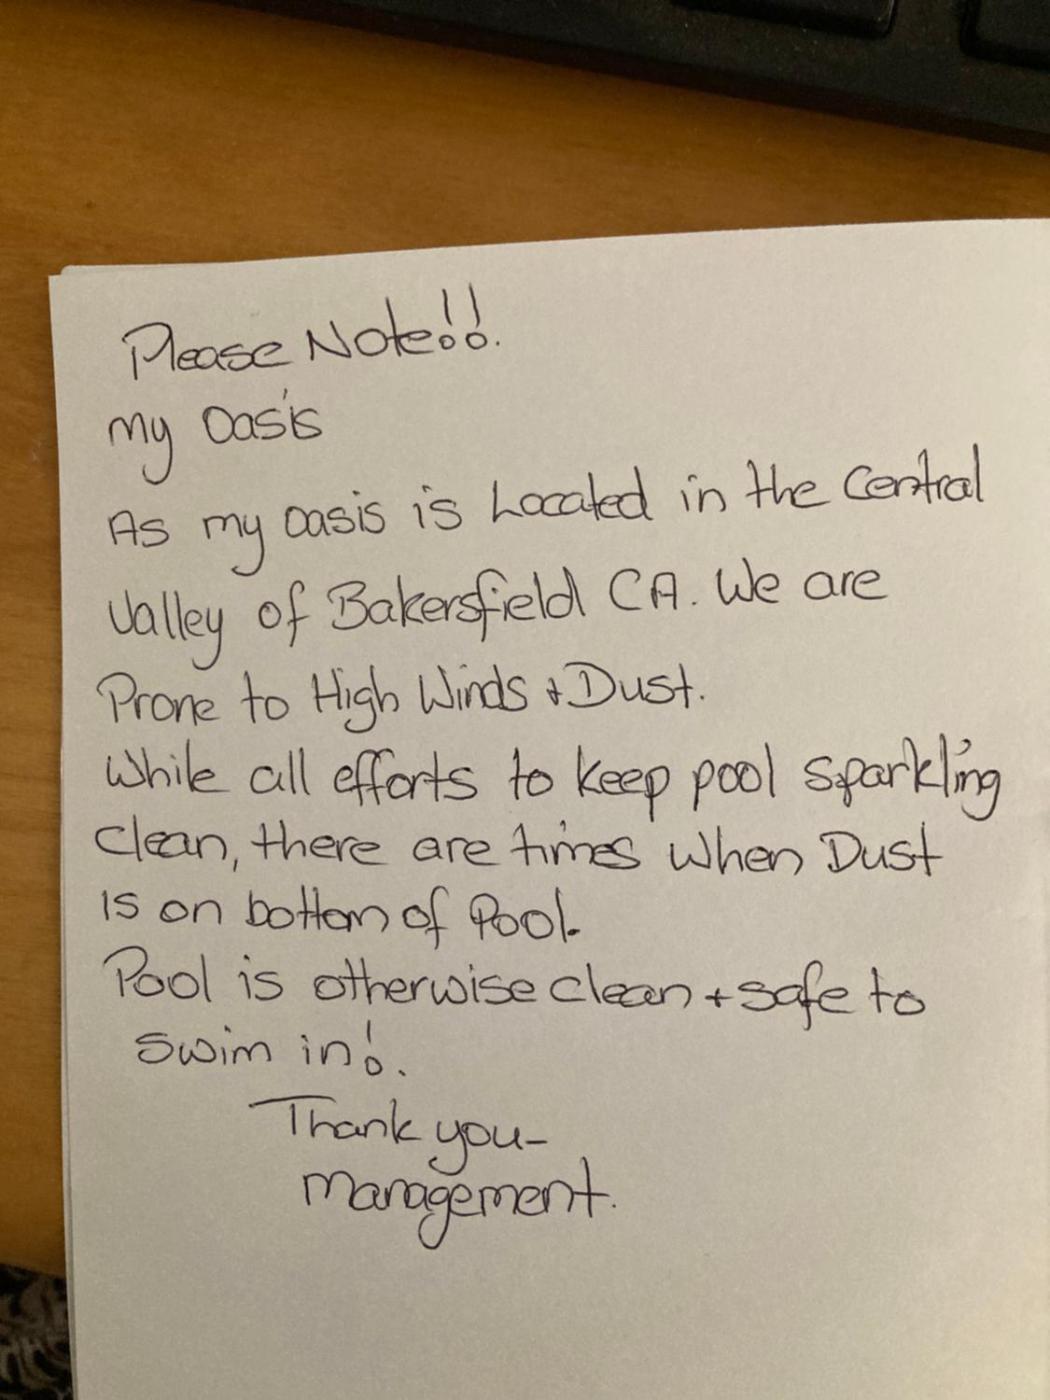 Please Note!!.
my Oasis
As my oasis is Located in the Central
Valley of Bakersfield CA. We are
Prone to High Winds + Dust.
While all efforts to keep pool sparkling
clean, there are times when Dust
is on bottom of Pool.
Pool is otherwise clean + safe to
swim in!.
Thank you-
management.